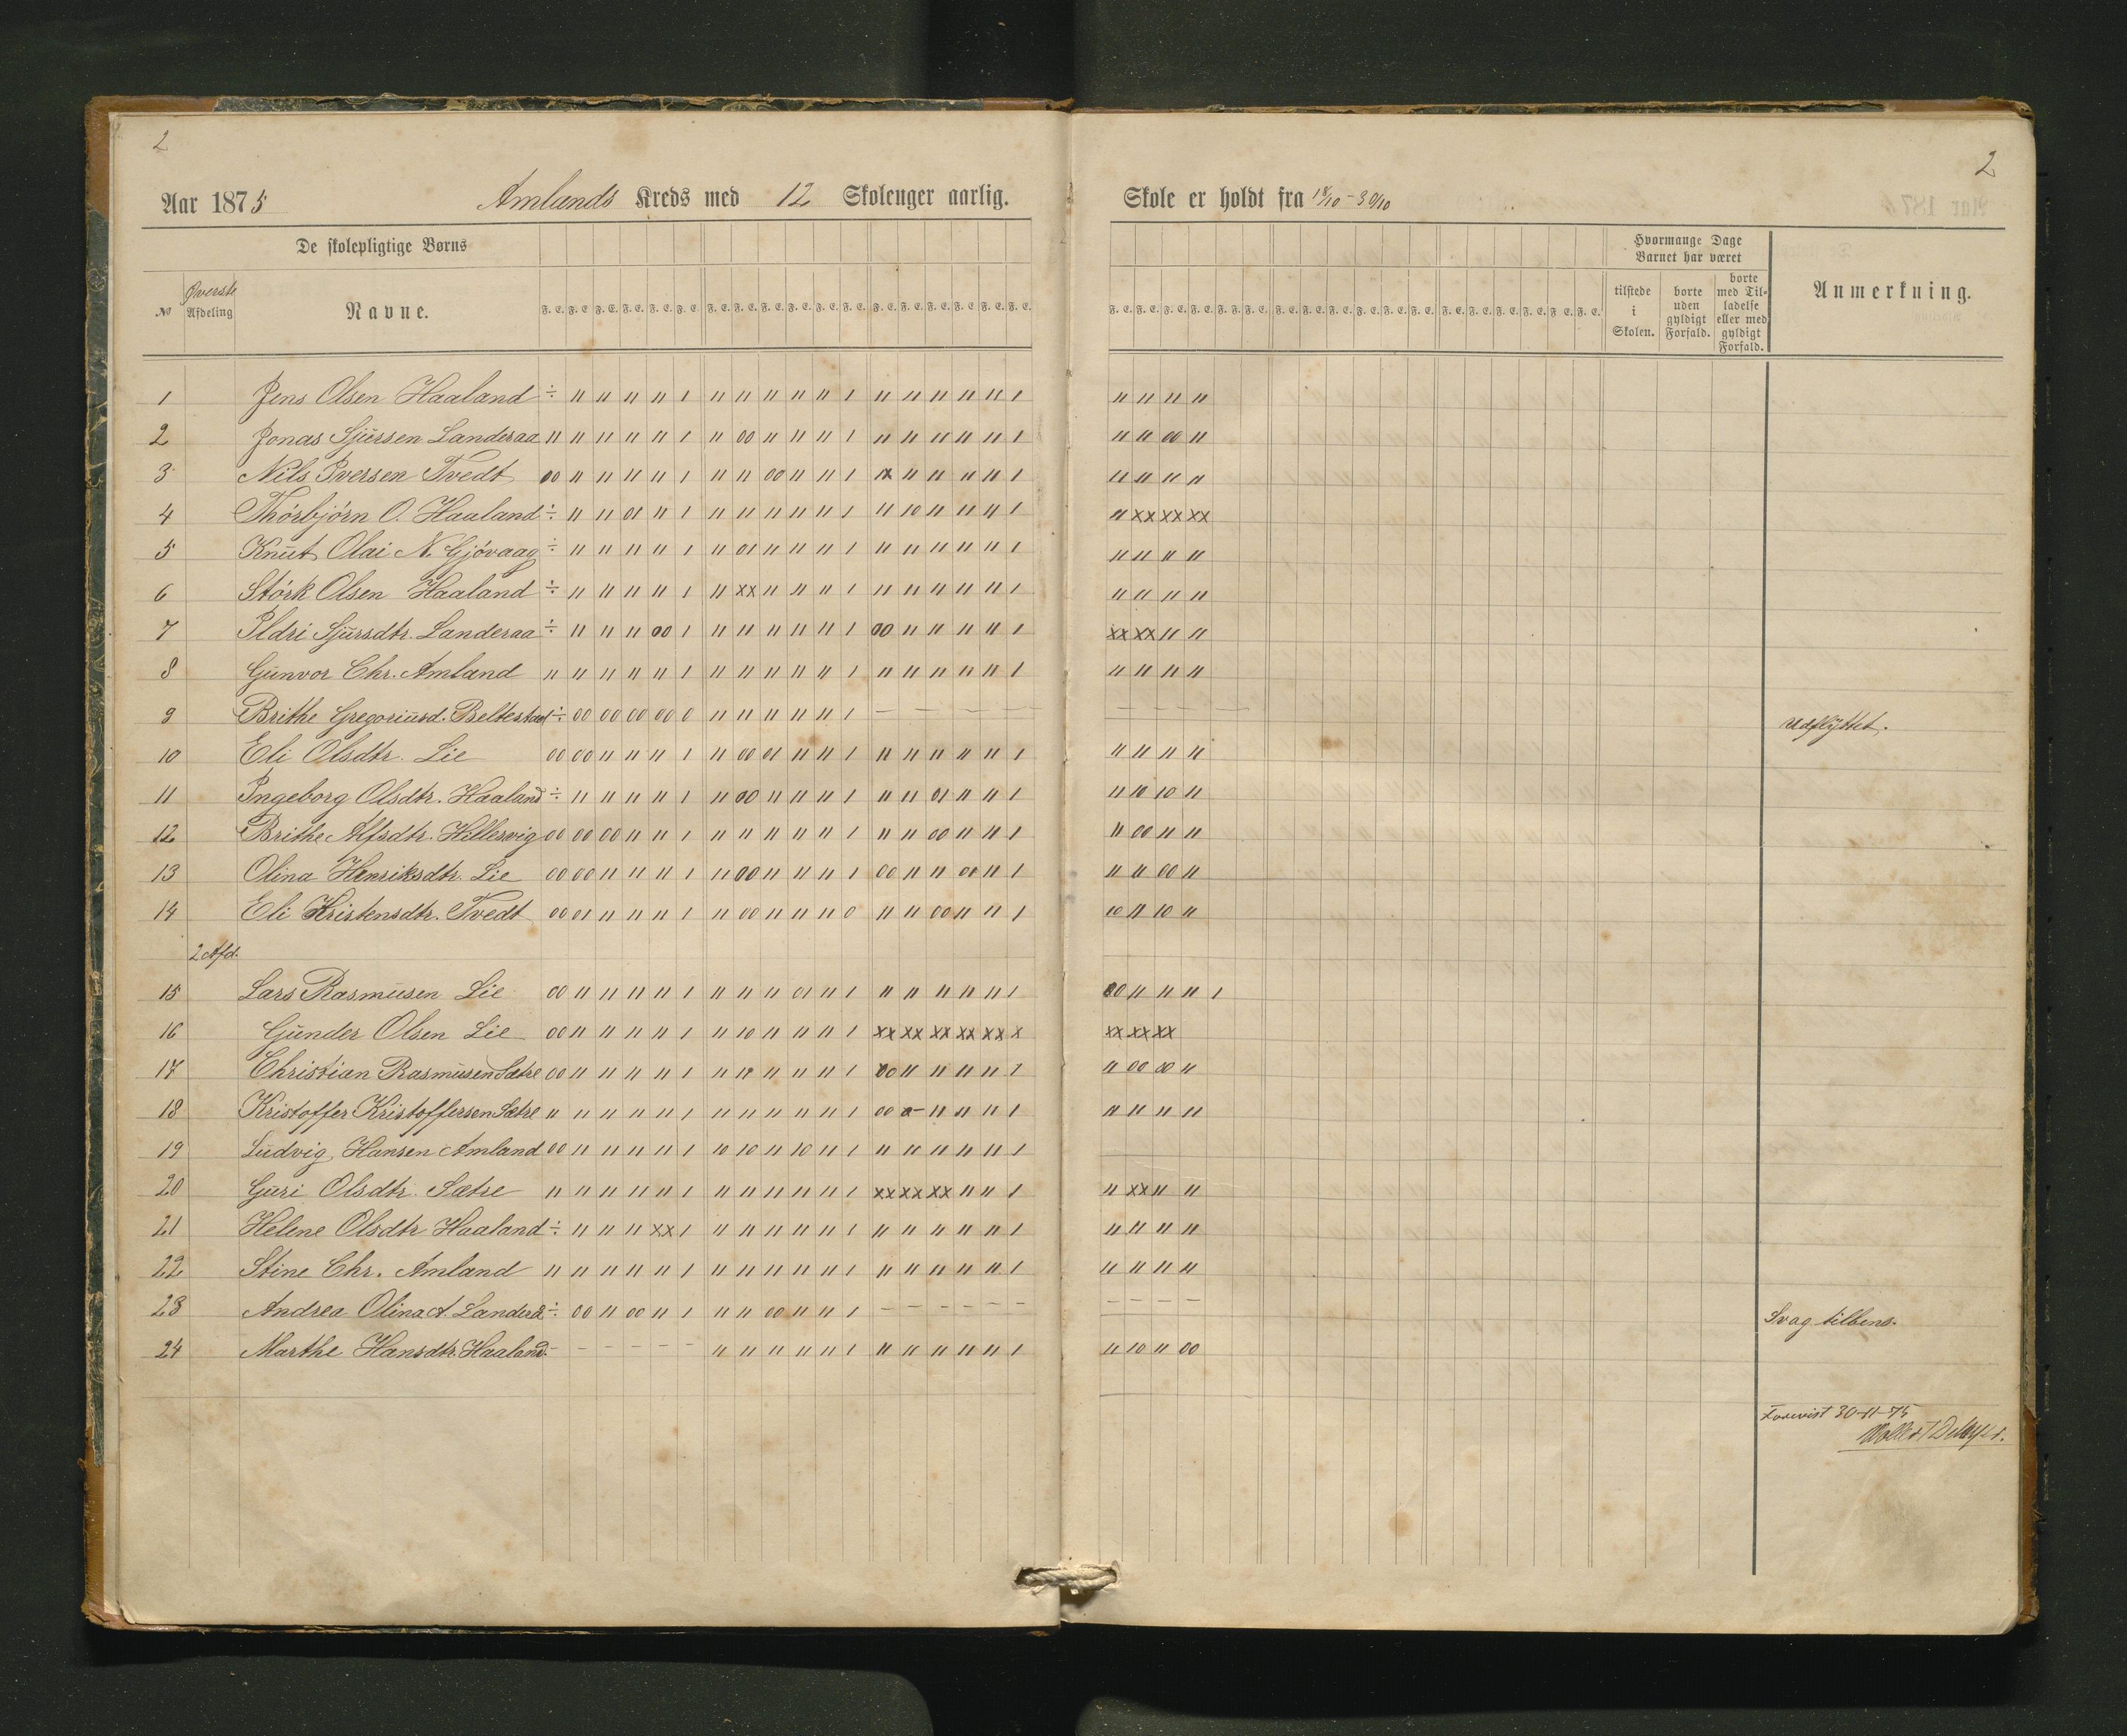 2
Aar 1875 Amlands Kreds med 12 Skoleuger aarlig.
De skolepligtige Børns
№ Øverste Afdeling Navne.
F. E. F. E. F. E. F. E. F. E. F. E. F. E. F. E. F. E. F. E. F. E. F. E. F. E. F. E. F. E. F. E. F. E. F. E.
1 Jens Olsen Haaland ÷ 11 11 11 11 1 11 11 11 11 11 1 11 11 11 11 11 1
2 Jonas Sjursen Landeraa 11 11 11 11 11 1 11 00 11 11 11 1 11 11 11 11 11 1
3 Nils Iversen Tvedt 00 11 11 11 11 1 11 11 00 11 11 1 x 11 11 11 11 1
4 Thórbjórn O. Haaland ÷ 11 11 01 11 1 11 11 11 11 11 1 11 10 11 11 11 1
5 Knut Olai N. Gjóvaag ÷ 11 11 11 11 1 11 01 11 11 11 1 11 11 11 11 11 1
6 Stórk Olsen Haaland ÷ 11 11 11 11 1 11 xx 11 11 11 1 11 11 11 11 11 1
7 Ildri Sjursdtr. Landeraa ÷ 11 11 11 00 1 11 11 11 11 11 1 00 11 11 11 11 1
8 Gunvor Chr. Amland 11 11 11 11 11 1 11 11 11 11 11 1 11 11 11 11 11 1
9 Brithe Gregoriusd. Beltestad ÷ 00 00 00 00 0 11 11 11 11 11 1 — — — — — —
10 Eli Olsdtr. Lie 00 00 11 11 11 1 11 00 01 11 11 1 11 11 11 11 11 1
11 Ingeborg Olsdtr. Haaland ÷ 11 11 11 11 1 11 00 11 11 11 1 11 11 01 11 11 1
12 Brithe Alfsdtr. Hillesvig 00 00 00 11 11 1 11 11 11 11 11 1 11 11 00 11 11 1
13 Olina Henriksdtr. Lie 00 00 11 11 11 1 11 00 11 11 11 1 00 11 11 00 11 1
14 Eli Kristensdtr. Tvedt 00 01 11 11 11 1 11 00 11 11 11 0 11 11 00 11 11 1
2 Afd.
15 Lars Rasmusen Lie 00 11 11 11 11 1 11 11 11 01 11 1 11 11 11 11 11 1
16 Gunder Olsen Lie 00 11 11 11 11 1 11 10 11 11 11 1 xx xx xx xx xx x
17 Christian Rasmusen Sætre 00 11 11 11 11 1 11 11 11 11 11 1 00 11 11 11 11 1
18 Kristoffer Kristoffersen Sætre 11 11 11 11 11 1 11 11 11 11 11 1 00 0- 11 11 11 1
19 Ludvig Hansen Amland 00 11 11 11 11 1 10 10 11 10 11 1 11 11 11 11 11 1
20 Guri Olsdtr. Sætre 11 11 11 11 11 1 11 11 11 11 11 1 xx xx xx 11 11 1
21 Helene Olsdtr Haaland ÷ 11 11 11 xx 1 11 11 11 11 11 1 11 11 11 11 11 1
22 Stine Chr. Amland 11 11 11 11 11 1 11 11 11 11 11 1 11 11 11 11 11 1
23 Andrea Olina A. ÷ 00 11 00 11 1 11 11 00 11 11 1 — — — — — —
24 Marthe Hansdtr. Haaland - - - - - - 11 11 11 11 11 1 11 11 11 11 11 1
2
Skole er holdt fra 18/10 - 30/10
Hvormange Dage Barnet har været
tilstede i Skolen.
borte uden gyldigt Forfald.
borte med Tilladelse eller med gyldigt Forfald.
Anmerkning.
F. E. F. E. F. E. F. E. F. E. F. E. F. E. F. E. F. E. F. E. F. E. F. E. F. E. F. E. F. E. F. E. F. E. F. E.
11 11 11 11
11 11 00 11
11 11 11 11
11 xx xx xx
11 11 11 11
11 11 11 11
xx xx 11 11
11 11 11 11
— — — — — Udflyttet.
11 11 11 11
11 10 10 11
11 00 11 11
11 11 00 11
10 11 10 11
00 11 11 11 1
xx xx xx
11 00 00 11
11 11 11 11
11 xx 11 11
11 11 11 11
11 11 11 11
— — — — Svag tilbens.
11 10 11 00
Forevist 30-11-75